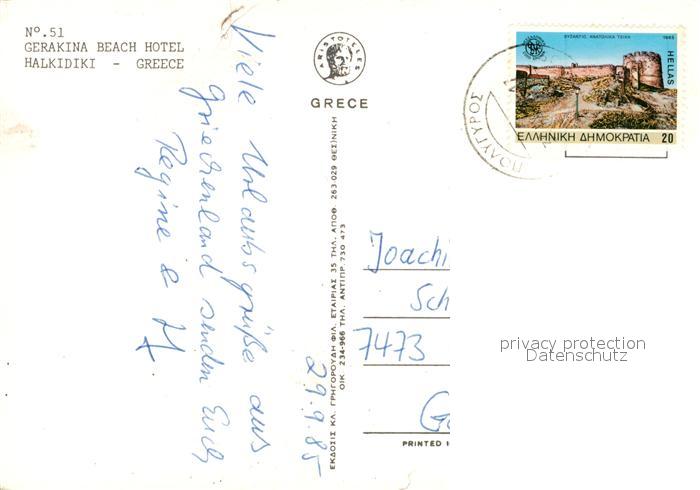 Nº.51
GERAKINA BEACH HOTEL
HALKIDIKI - GREECE
Viele Urlaubsgrüße aus
Griechenland senden Euch
Regine &
29.9.85
ARISTOTELES
GRECE
ΕΚΔΟΣΙΣ ΚΛ. ΓΡΗΓΟΡΟΥΔΗ ΦΙΛ. ΕΤΑΙΡΙΑΣ 35 ΤΗΛ. ΑΠΟΘ. 263.029 ΘΕΣ)ΝΙΚΗ
ΟΙΚ. 234-966 ΤΗΛ. ΑΝΤΙΠΡ. 730 473
ΒΥΖΑΝΤΙΟ ΑΝΑΤΟΛΙΚΑ ΤΕΙΧΗ 1985
HELLAS
ΕΛΛΗΝΙΚΗ ΔΗΜΟΚΡΑΤΙΑ 20
ΠΟΛΥΓΥΡΟΣ
Joachi
Sch
7473
G
PRINTED
privacy protection
Datenschutz